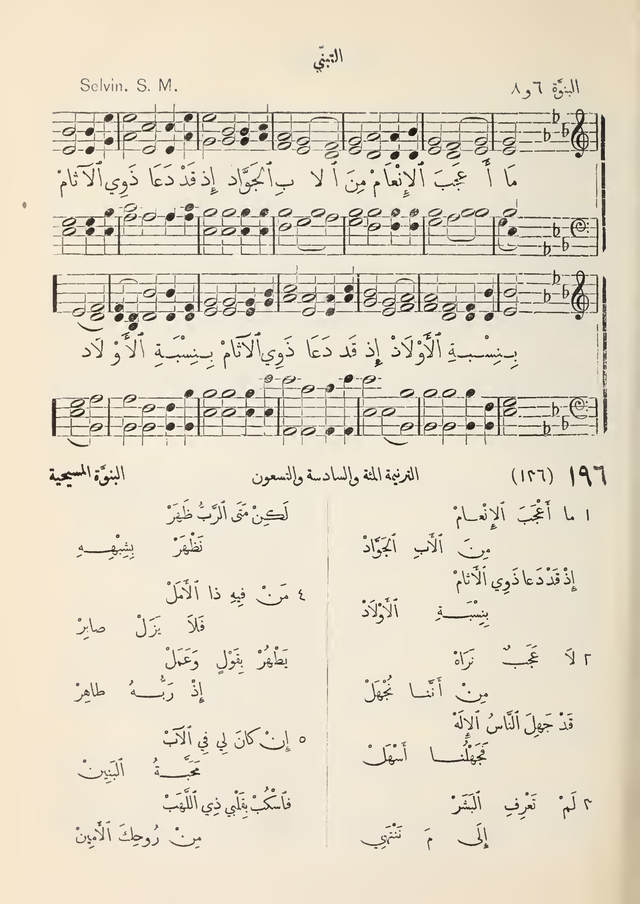 التبنّي
البنوَّة ٦ و٨ Selvin. S. M.
مَا أَ عْجَبَ ٱلإِنْعَامْ مِنَ ٱلا بِ ٱلجَوَّاد إِذ قَدْ دَعَا ذَوِي ٱلآثَامْ
بِـنِسْبَـةِ ٱلأَوْلَادْ إِذ قَد دَعَا ذَوِي ٱلآثَامْ بِـنِسْبَـةِ ٱلأَوْلَاد
١٩٦ (١٢٦) الترنيمة المئة والسادسة والتسعون البنوَّة المسيحية
١ ما أَعْجَبَ ٱلإِنْعـامْ
مِنَ ٱلآبِ ٱلجَوَّادْ
إِذْ قَدْ دَعا ذَوِي ٱلآثامْ
بِنِسْبَةِ ٱلأَوْلَادْ
٢ لاَ عَجَبٌ نَرَاهْ
مِنْ أَنَّنا نُجْهَلْ
قَدْ جَهِلَ ٱلنَّاسُ ٱلإِلٰهْ
فَجَهْلُنـا أَسْهَلْ
٣ لَمْ تَعْرِفِ ٱلبَشَرْ
إِلَى مَ نَنْتَهِي
لَكِنْ مَتَى ٱلرَّبُّ ظَهَرْ
نَظْهَرْ بِشِبْهِـهِ
٤ مَنْ فِيهِ ذا ٱلأَمَلْ
فَلاَ يَزَلْ صابِرْ
يَطْهُرْ بِقَولٍ وَعَمَلْ
إِذْ رَبُّـهُ طاهِرْ
٥ إِنْ كانَ لي فِي ٱلآبْ
مَحَبَّةُ ٱلبَنِينْ
فَاسْكُبْ بِقَلْبِي ذِي ٱللَّهَبْ
مِنْ رُوحِكَ ٱلأَمِينْ